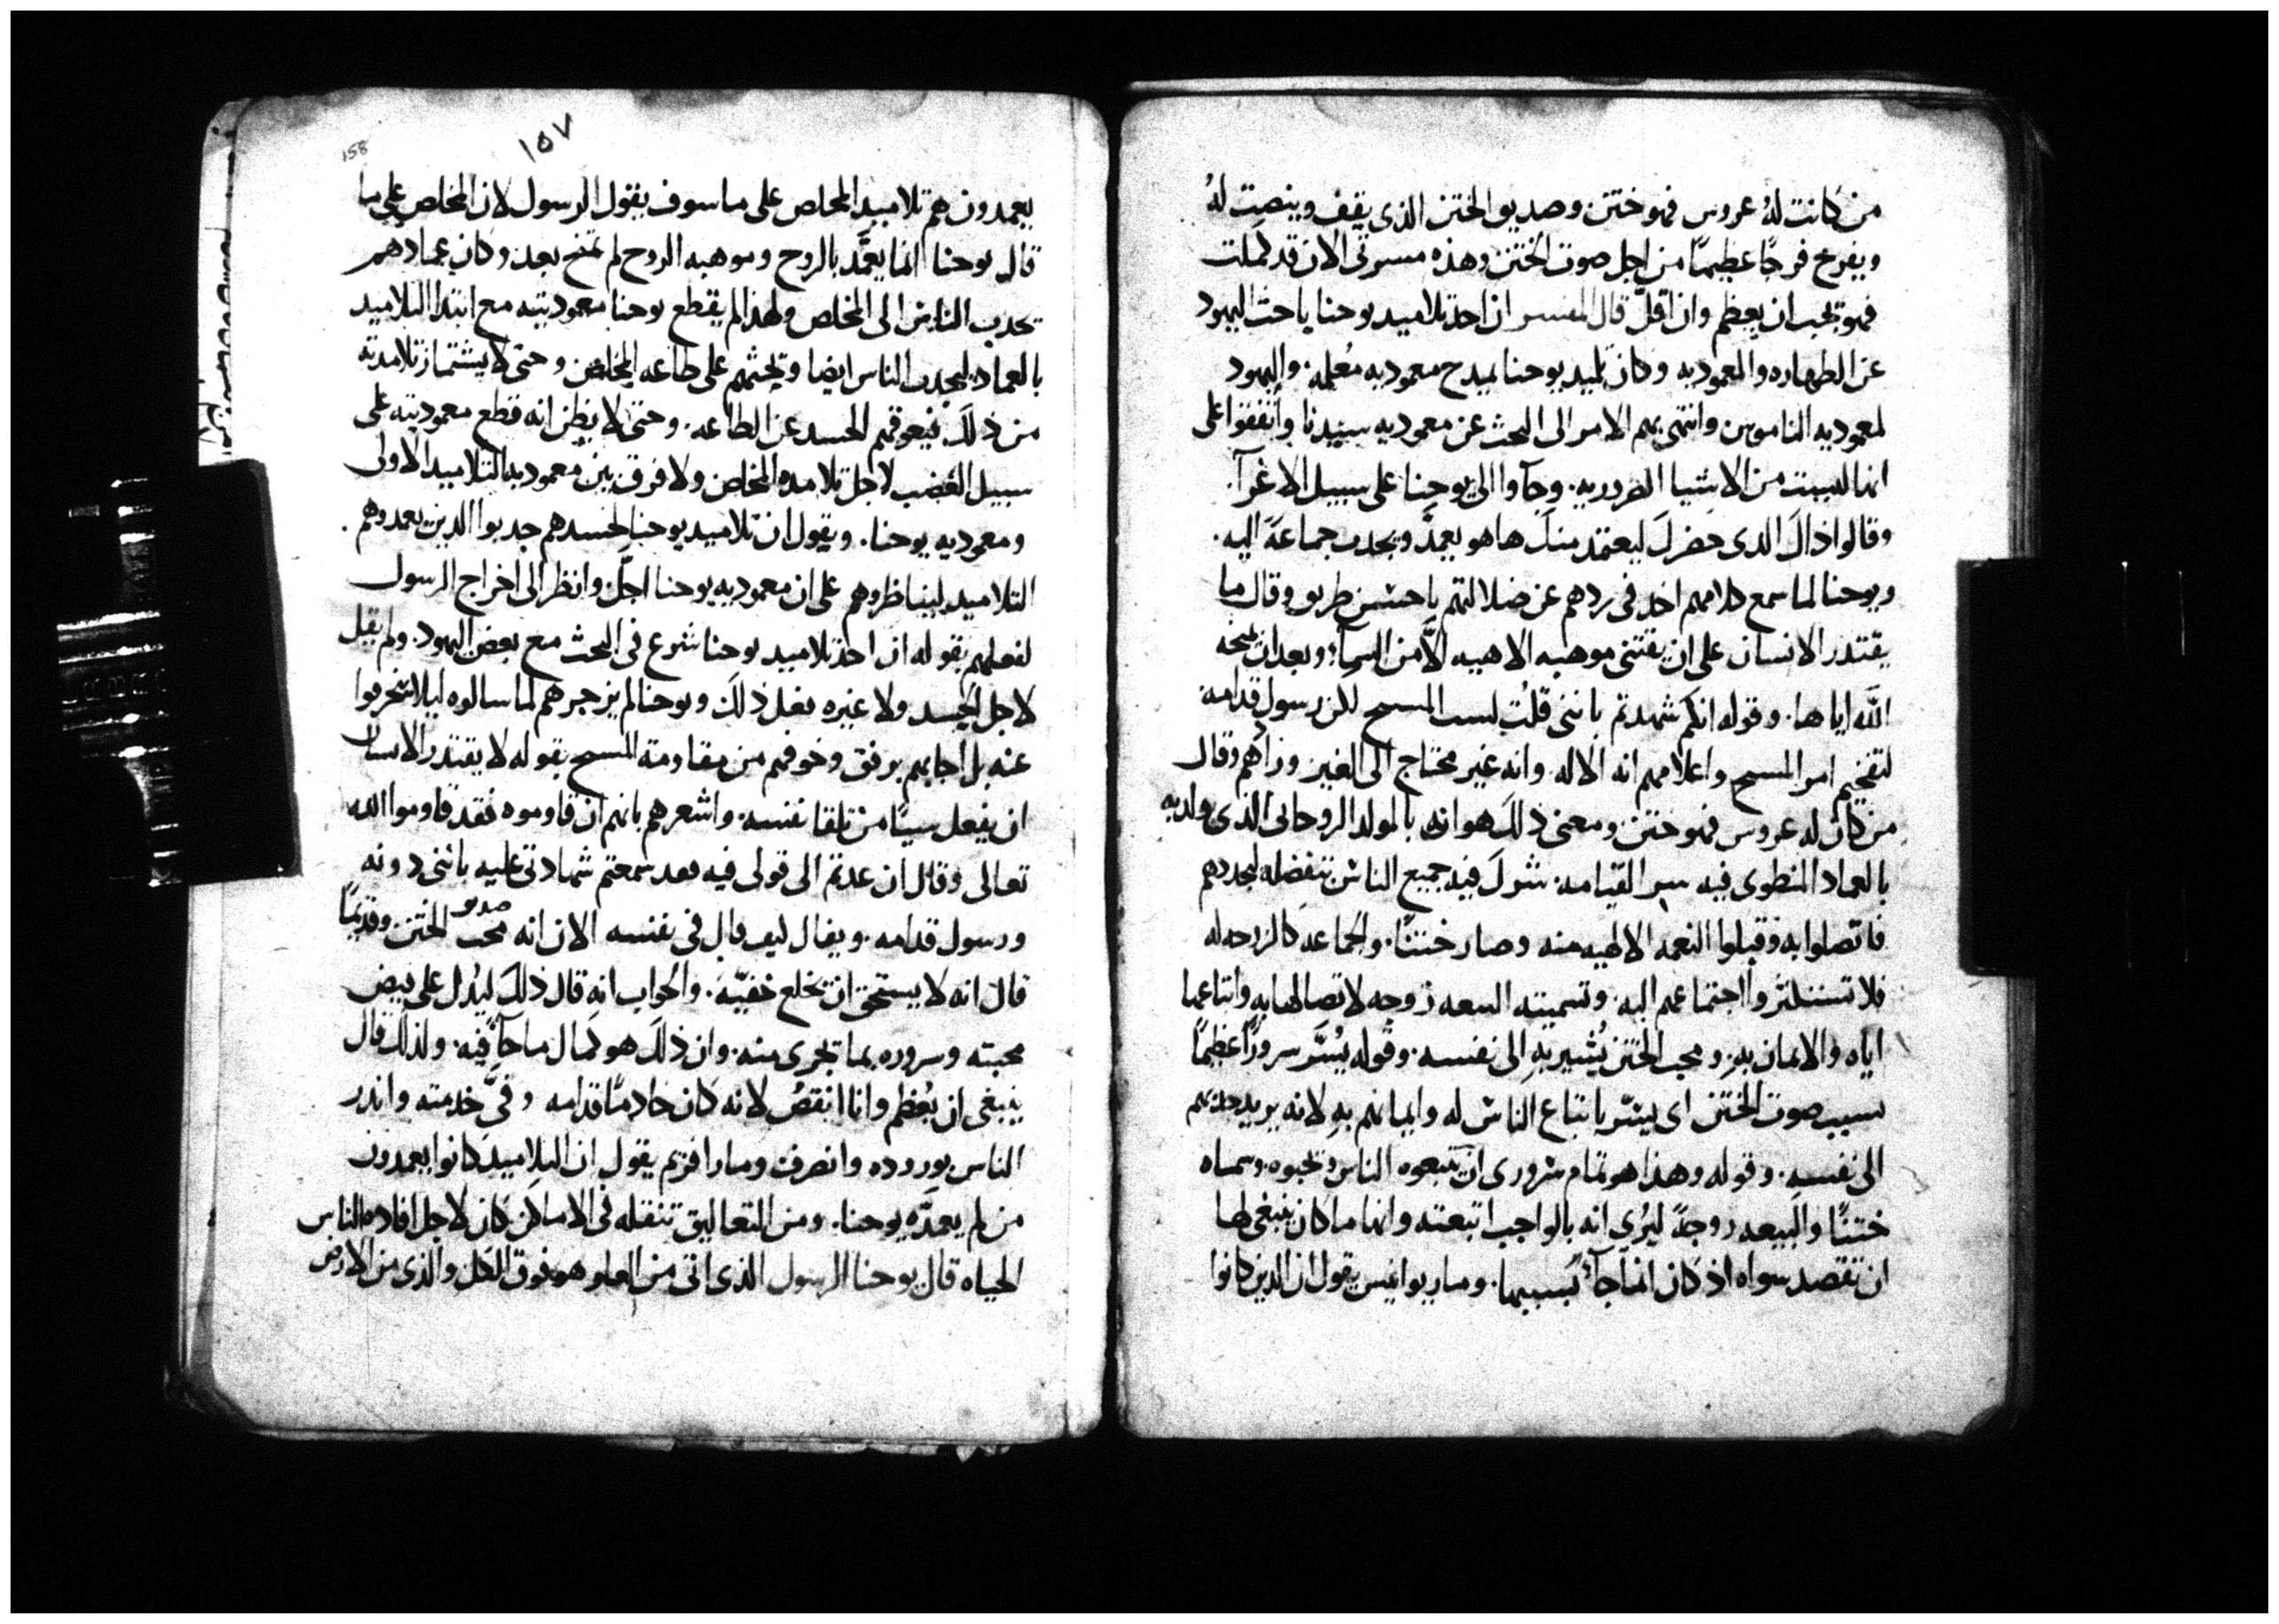 من كانت لهُ عروس فهو ختن وصديق الختن الذى يقف وينصت لهُ
ويفرح فرحًا عظيمًا من اجل صوت الختن وهذه مسرتى الان قد كملت
فهو يجب ان يعظم وان اقلّ قال المفسر ان احد تلاميد يوحنا باحث اليهود
عن الطهاره والمعموديه وكان تلميد يوحنا يمدح معموديه مُعلمه. واليهود
لمعموديه الناموس وانتهى بهم الامر الى البحث عن معموديه سيدنا واتفقوا على
انها ليست من الاشيا الضروريه. وجآوا الى يوحنا على سبيل الاغرآ.
وقالوا ذاك الدى حضرك ليعتمد منك ها هو يعمدَّ ويجدب جماعهَ اليه.
ويوحنا لما سمع كلامهم اخد فى ردهم عن ضلالتهم باحسن طريق وقال ما
يقتدر الانسان على ان يقتنى موهبه الاهيه الاَّ من السمآ. وبعد ان يمنحه
اللَّه اياها. وقوله انكم شهدتم باننى قلت لست المسيح لكن رسول قدامه
لتفخيم امر المسيح واعلامهم انه الاله. وانه غير محتاج الى الغير وزادهم وقال
من كان له عروس فهو ختن ومعنى ذلك هو انه بالمولد الروحانى الذى ولد به
بالعماد المنطوى فيه سر القيامه. شرك فيه جميع الناس بتفضله ليجددهم
فاتصلوا به وقبلوا النعمه الالهيه منه وصار ختنًا. والجماعه كالزوجه له
فلا تستنكروا اجتماعهم اليه. وتسميته البيعه زوجه لاتصالها به واتباعها
اياه والايمان به. ومحب الختن يُشير به الى نفسه. وقوله يُسَّر سرورًا عظيمًا
بسبب صوت الختن اى يسّر باتباع الناس له وايمانهم به لانه يريد جدبهم
الى نفسه. وقوله وهذا هو تمام سرورى ان يتبعوه الناس ويحبوه. وسماه
ختنًا والبيعه زوجهً ليُرى انه بالواجب اتبعته وانها ما كان ينبغى لها
ان تقصد سواه اذ كان انما جآ بسببها. ومار يوانيس يقول ان الدين كانوا
158
١٥٧
يعمدون هم تلاميد المخلص على ما سوف يقول الرسول لان المخلص على ما
قال يوحنا انما يعمَّد بالروح وموهبه الروح لم تمنح بعد وكان عمادهم
يجدب الناس الى المخلص ولهذا لم يقطع يوحنا معموديته مع ابتدا التلاميد
بالعماد ليجدب الناس ايضا ويحثهم على طاعه المخلص وحتى لا يشتماز تلامدته
من ذلك فيعوقهم الحسد عن الطاعه. وحتى لا يظن انه قطع معموديته على
سبيل الغضب لاجل تلامده المخلص ولا فرق بين معموديه التلاميد الاولى
ومعموديه يوحنا. ويقول ان تلاميد يوحنا لحسدهم جدبوا الدين يعمدوهم.
التلاميد ليناظروهم على ان معموديه يوحنا اجلَّ وانظر الى اخراج الرسول
لفعلهم بقوله ان احد تلاميد يوحنا شرع فى البحث مع بعض اليهود. ولم يقل
لاجل الحسد ولا غيره فعل ذلك ويوحنا لم يزجرهم لما سالوه ليلا ينحرفوا
عنه بل اجابهم برفق وخوفهم من مقاومة المسيح بقوله لا يقتدر الانسان
ان يفعل شيئًا من تلقا نفسه. واشعرهم بانهم ان قاوموه فقد قاوموا الله
تعالى وقال ان عدتم الى قولى فيه فقد سمعتم شهادتى عليه باننى دونه
ورسول قدامه. ويقال كيف قال فى نفسه الان انه محب صديق الختن وقديمًا
قال انه لا يستحق ان يخلع خفيّه. والجواب انه قال ذلك ليدُل على فيض
محبته وسروره بما تجرى منه. وان ذلك هو كمال ما جآ فيه. ولذلك قال
ينبغى ان يُعظم وانا انقصُ لانه كان خادمًا قدامه وفىَّ خدمته وانذر
الناس بوروده وانصرف ومار افريم يقول ان التلاميد كانوا يعمدون
من لم يعمدَّه يوحنا. ومن التعاليق تنقله فى الاماكن كان لاجل افاده الناس
الحياه قال يوحنا الرسول الذى اتى من العلو هو فوق الكل والذى من الارض